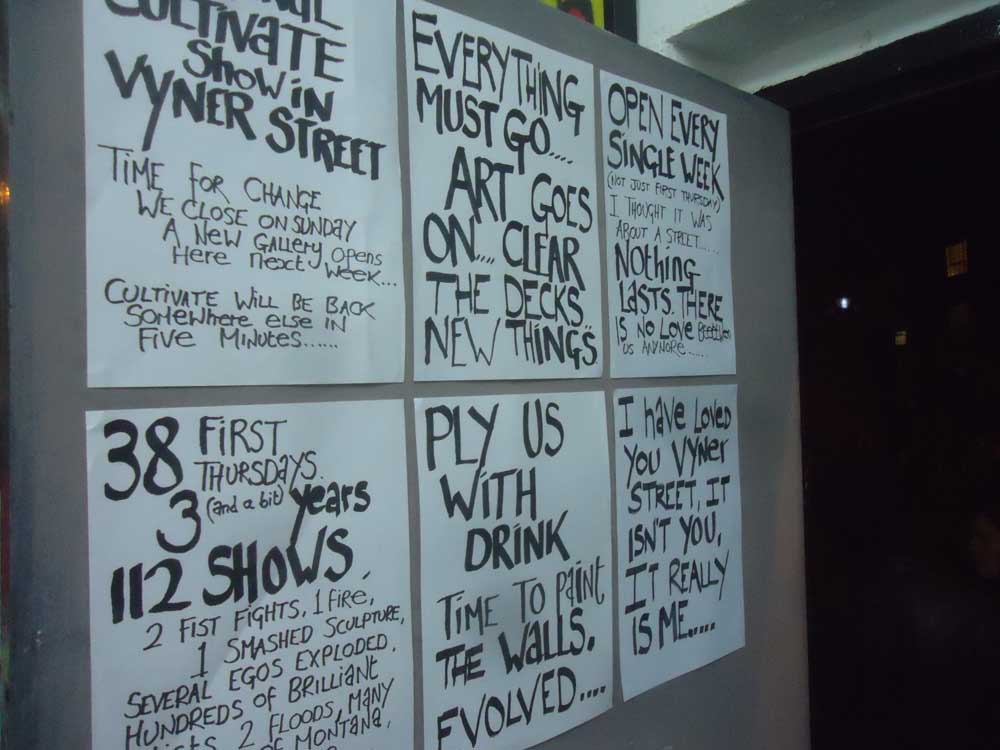 CULTIVATE
SHOW IN
VYNER STREET
TIME FOR CHANGE
WE CLOSE ON SUNDAY
A NEW GALLERY OPENS
HERE NEXT WEEK...
CULTIVATE WILL BE BACK
SOMEWHERE ELSE IN
FIVE MINUTES......
EVERYTHING
MUST GO....
ART GOES
ON.... CLEAR
THE DECKS..
NEW THINGS..
OPEN EVERY
SINGLE WEEK
(NOT JUST FIRST THURSDAY)
I THOUGHT IT WAS
ABOUT A STREET......
NOTHING
LASTS. THERE
IS NO LOVE Between
US ANYMORE......
38 FIRST
THURSDAYS.
3 (and a bit) years
112 SHOWS.
2 FIST FIGHTS, 1 FIRE,
1 SMASHED SCULPTURE,
SEVERAL EGOS EXPLODED.
HUNDREDS OF BRILLIANT
2 FLOODS, MANY
OF MONTANA,
PLY US
WITH
DRINK
TIME TO PAINT
THE WALLS.
EVOLVED....
I have Loved
YOU VYNER
STREET, IT
ISN'T YOU,
IT REALLY
IS ME.....